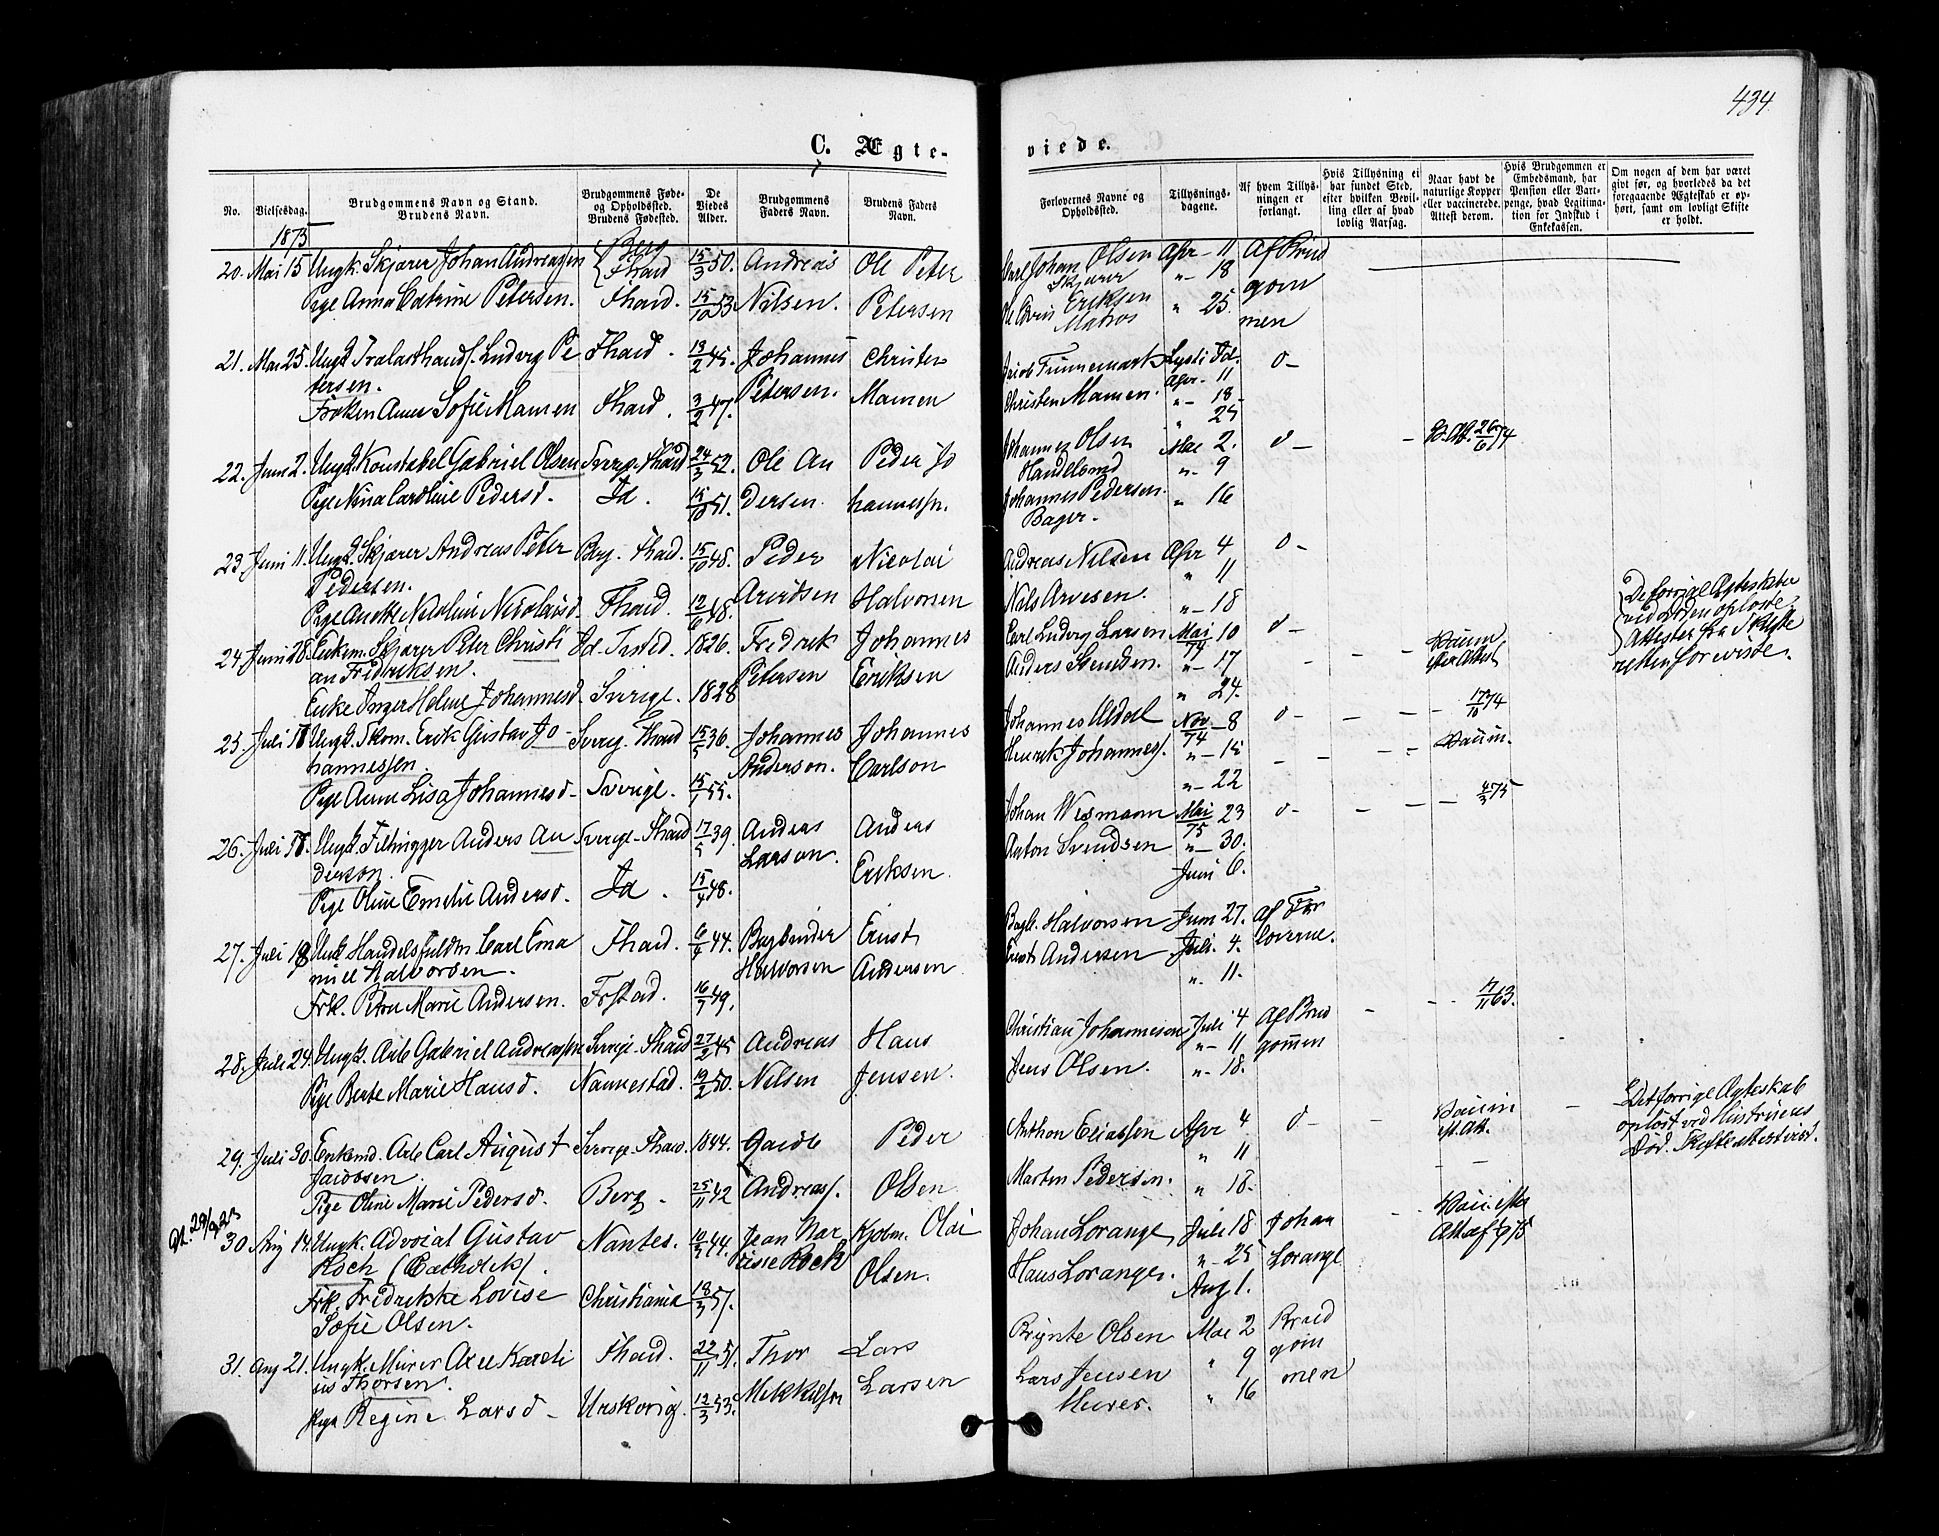 434
C. Ægte-
viede.
No.
Vielsesdag.
Brudgommens Navn og Stand.
Brudens Navn.
Brudgommens Føde-
og Opholdssted.
Brudens Fødested.
De
Viedes
Alder.
Brudgommens
Faders Navn.
Brudens Faders
Navn.
Forlovernes Navne og
Opholdssted.
Tillysnings-
dagene.
Af hvem Tillys-
ningen er
forlangt.
Hvis Tillysning ei
har fundet Sted,
efter hvilken Bevil-
ling eller af hvad
lovlig Aarsag.
Naar havt de
naturlige Kopper
eller vaccinerede.
Attest derom.
Hvis Brudgommen er
Embedsmand, har
Pension eller Vart-
penge, hvad Legitima-
tion for Indskud i
Enkekassen.
Om nogen af dem har været
givt før, og hvorledes da det
foregaaende Ægteskab er op-
hørt, samt om lovligt Skifte
er holdt.
1875
20. Mai 15 Ungk. Skjærer Johan Andreassen Berg Fhald 15/3 50. Andreas Ole Peter
Pige Anna Catrine Petersen. Fhald. 15/10 53. Nilsen. Petersen
Carl Johan Olsen Apr - 11 Af Brud
Skjærer " - 18 gom
Eriksen " 25. men
Matros
21. Mai 25. Ungk. Tralasthandl. Ludvig Pe Fhald. 13/2 45. Johannes Christen
tersen. Petersen. Mamen
Frøken Anna Sofie Mamen Fhald. 3/2 47.
Jacob Finnemark Lyst i Id. o -
Apr - 11
Christen Mamen. " - 18
" 25
22. Juni 2. Ungk. Konstabel Gabriel Olsen Sverig. Fhald 24/3 52. Ole An Peder Jo
Pige Nina Caroline Pedersd. Id. 15/10 51. dersen. hannessn.
Johannes Olsen Mai 2. o - - 26/6 74
Handelsmd " - 9
Johannes Pedersen. " 16
Bager.
23. Juni 11. Ungk. Skjærer Andreas Peter Berg. Fhald. 15/10 48. Peder Nicolai
Pedersen. Arvidsen Halvorsen
Pige Anette Nicoline Nicolaisd. Fhald. 12/6 48.
Andreas Nilsen Apr 4 o -
" 11
Nils Arvesen. " - 18
24. Juni 28. Enkem. Skjærer Peter Christi Id. 1826. Fredrik Johannes
an Fredriksen. Petersen Eriksen
Enke Inger Helene Johannesd. Sverige. 1828
Carl Ludvig Larsen Mai/74 10 o -
Anders Svendsen. " - 17
" 24.
Vaccin
Attester fra Skifte
25. Juli 18 Ungk. Skom. Erik Gustav Jo - Sverig. Fhald 15/5 36. Johannes Johannes
hannessen. Anderson. Carlson
Pige Anna Lisa Johannesd - Sverige. 15/1 55.
Johannes Nov/74 - 8 o - 17/10 74
Henrik Johannes. " - 15 Vaccin.
" - 22
26. Juli 18. Ungk. Filhugger Anders An Sverige - Fhald 17/5 39. Anders Anders
derson. Larson. Eriksen
Pige Oline Emelie Andersd. Id. 15/4 48.
Johan Wesmann Mai/75 23 o - 4/3 75
Anton Svendsen " - 30.
Juni 6.
27. Juli 18 Ungk Handelsfuldm. Carl Ema Fhald. 6/9 44. Bogbinder Ernst
nuel Halvorsen. Halvorsen Andersen
Frk. Petra Marie Andersen. Frstad. 16/7 49.
Bogb. Halvorsen Juni 27. af For
Ernst Andersen Juli. 4. loverne.
" . 11.
28. Juli 24. Ungk. Arb Gabriel Andreassen Sverige - Fhald 27/2 45 Andreas Hans
Pige Berte Marie Hansd. Nannestad. 19/2 50. Nilsen Jensen.
Christian Johannesen Juli 4 Af Brud 17/11 63.
" - 11 gommen
Jens Olsen. " - 18.
29. Juli 30. Enkmd. Arb. Carl August Sverige - Fhald. 1844. Peder
Jacobsen. Andreas. Olsen
Pige Oline Marie Pedersd. Berg - 25/11 42
Anthon Eliassen Apr 4 o - Vaccin
" 11
Marten Pedersen. " 18.
Det forrige Ægteskab
opløst ved Hustruens
Død.
30 Aug 14. Ungk. Advocat Gustav Nantes. 10/3 44. Jean Nar Kjøbm. Olai
Roch (Catholik). cisse Roch Olsen.
Frk. Fredrikke Lovise Christiania 18/3 57.
Sofie Olsen.
Johan Lorange, Juli 18 Johan
Hans Lorange. " - 25 Lorange
Aug 1.
31. Aug 21. Ungk. Murer Axel Kareli Fhald. 22/11 51. Thor Lars
us Thorsen. Mikkelsn Larsen
Pige Regine Larsd - Urskoug. 12/3 53.
Brynte Olsen Mai 2 Brud
Lars Jensen " 9 gom
Murer. " 16 men